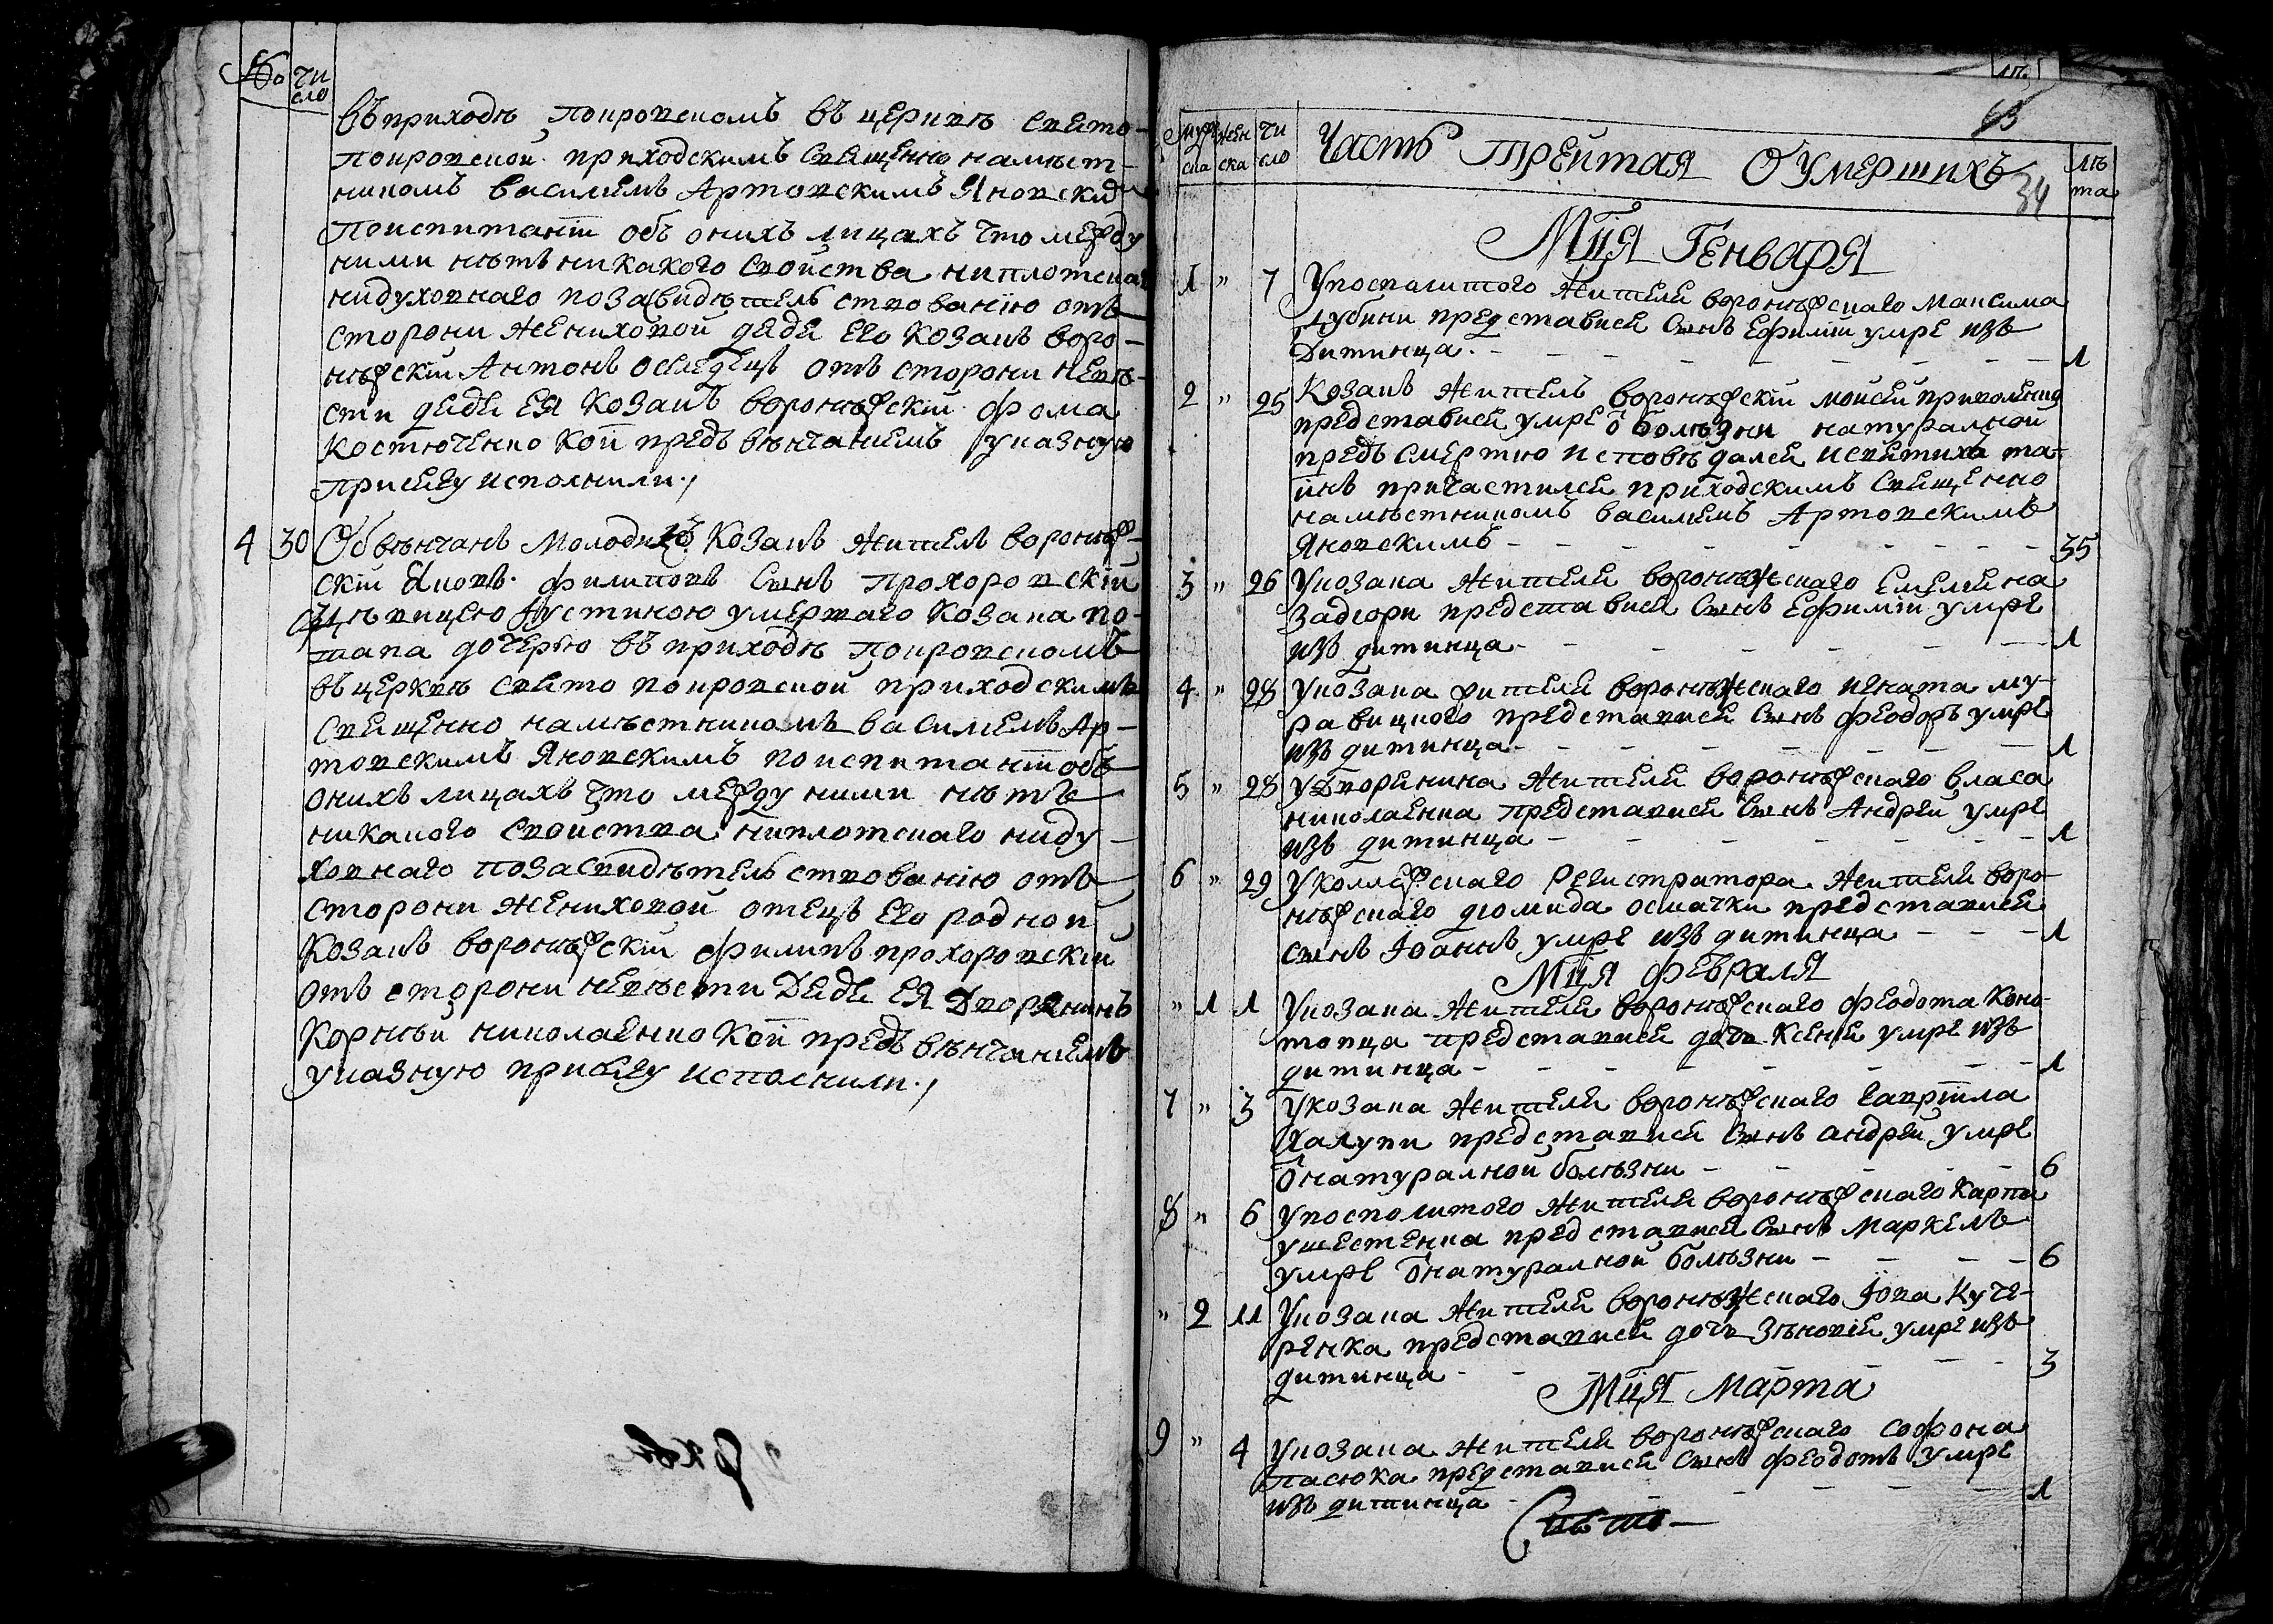 чи
сло
въ приходѣ покровскомъ въ церквѣ свято-
покровской приходскимъ священно намѣст-
никомъ василиемъ Артовскимъ Яновским
поиспитаніи объ онихъ лицахъ что между
ними нѣтъ никакого свойства ниплотскаг
нидуховнаго позасвидѣтельствованію отъ
сторони жениховой дядя его козакъ воро-
нѣжскій Антонъ отъ сторони невѣ-
сти дядя ея козакъ воронѣжскій фома
костюченко кои предъ вѣнчаниемъ указную
присягу исполнили.
4 30 Обвѣнчанъ молодикъ козакъ житель воронѣж-
скій филиповъ синъ прохоровскій
здѣвицею Иустиною умершаго козака по-
тапа дочерью въ приходѣ покровскомъ
въ церквѣ свято покровской приходскимъ
священно намѣстникомъ василиемъ Ар-
товскимъ Яновскимъ поиспитаніи объ
онихъ лицахъ что между ними нѣтъ
никакого свойства ниплотскаго ниду-
ховнаго позасвидѣтельствованію отъ
сторони жениховой отецъ его родной
козакъ воронѣжскій филипъ прохоровскій
отъ сторони невѣсти дядя ея дворянинъ
корнѣй николаенко кои предъ вѣнчаниемъ
указную присягу исполнили.
63
муже ска жен ска чи сло Часть трейтая О умершихъ лѣ та
34
Мця Генваря
1 " 7 Упосполитого жителя воронѣжскаго максима
дубини представися синъ Ефимій умре изъ
дитинца - 1
2 " 25 Козакъ житель воронѣжскій моисей
представися умре ѿ болѣзни натуралной
предъ смертію исповѣдался исвятихъ та-
инъ причастился приходскимъ священно
намѣстникомъ василиемъ Артовскимъ
Яновскимъ - 35
3 " 26 Укозака жителя воронѣжскаго Емеляна
задсори представися синъ Ефимій умре
изъ дитинца - 1
4 " 28 Укозака жителя воронѣжскаго игната му-
равицкого представися синъ феодоръ умре
изъ дитинца - 1
5 " 28 Удворянина жителя воронѣжскаго власа
николаенка представися синъ Андрей умре
изъ дитинца - 1
6 " 29 Уколлежскаго регистратора жителя воро-
нѣжскаго диомида осмачки представися
синъ Іоаннъ умре изъ дитинца - 1
Мця февраля
" 1 1 Укозака жителя воронѣжскаго феодота коно-
топца представися дочъ Ксенія умре изъ
дитинца - 1
7 " 3 Укозака жителя воронѣжскаго гавріила
халупи представися синъ андрей умре
ѿ натуралной болѣзни - 6
8 " 6 Упосполитого жителя воронѣжскаго карпа
ушестенка представися синъ маркелъ
умре ѿ натуралной болѣзни - 6
" 2 11 Укозака жителя воронѣжскаго Іова куче-
ренка представися дочъ Зѣновія умре изъ
дитинца - 3
Мця Марта
9 " 4 Укозака жителя воронѣжскаго софона
пасюка представися синъ феодотъ умре
изъ дитинца - 1